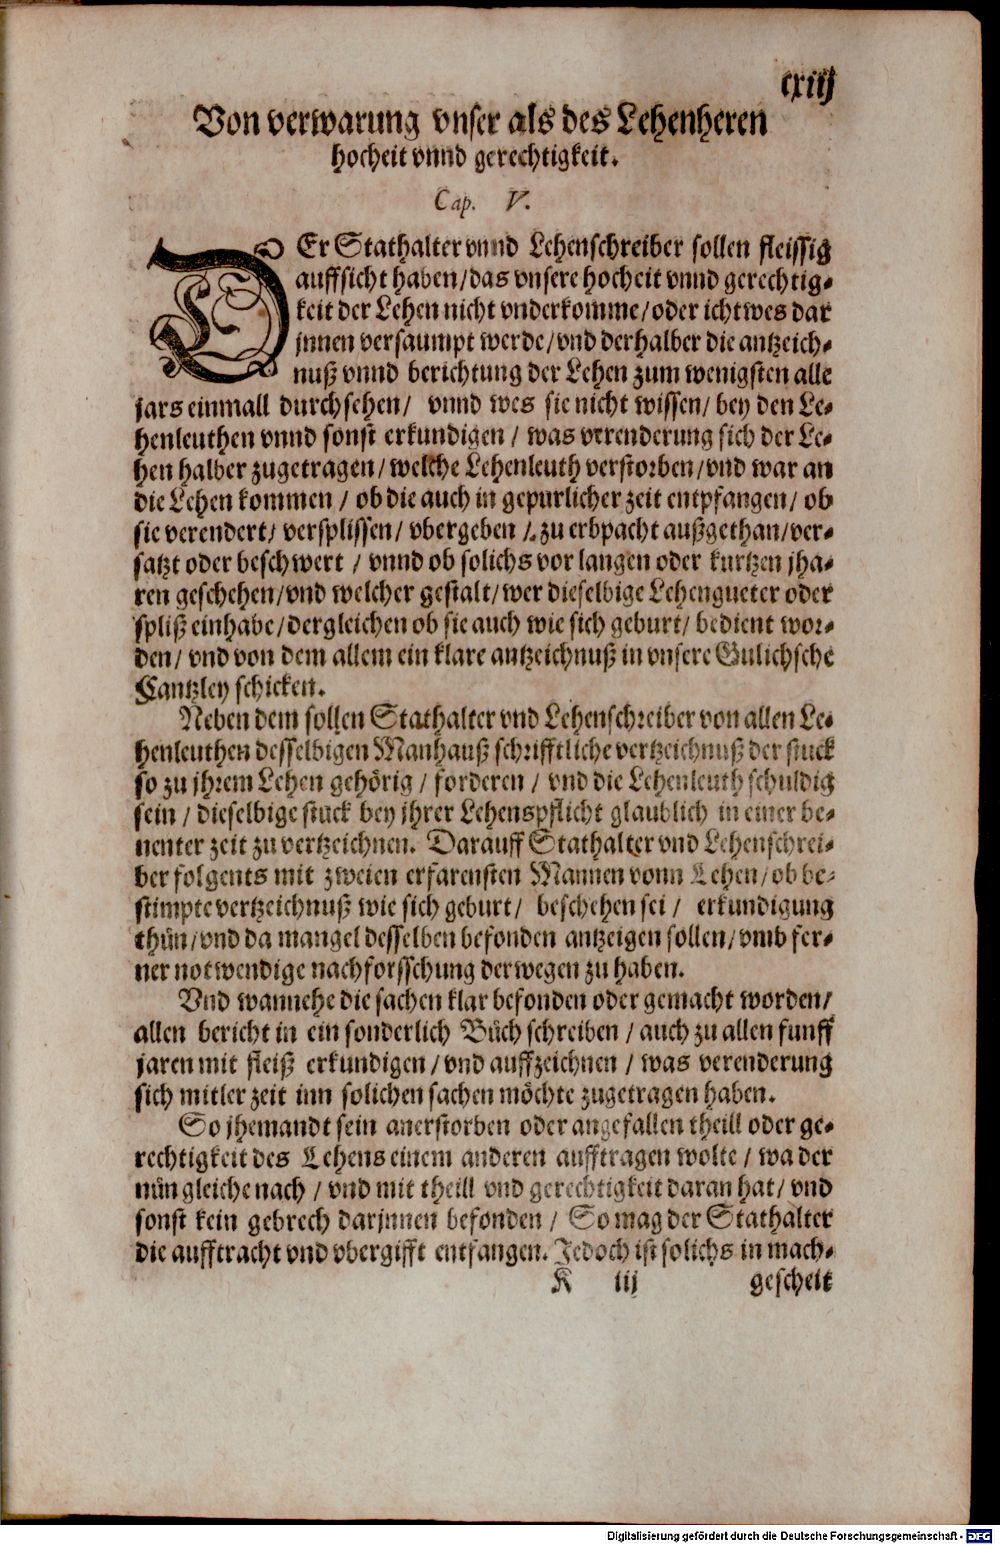 cxiij
Von verwarung vnser als des Lehenheren
hocheit vnnd gerechtigkeit.
Cap. V.
DEr Stathalter vnnd Lehenschreiber sollen fleissig
auffsicht haben/das vnsere hocheit vnnd gerechtig-
keit der Lehen nicht vnderkomme/oder ichtwes dar
jnnen versaumpt werde/vnd derhalber die antzeich-
nuß vnnd berichtung der Lehen zum wenigsten alle
jars einmall durchsehen/ vnnd wes sie nicht wissen/ bey den Le-
henleuthen vnnd sonst erkundigen / was verenderung sich der Le-
hen halber zugetragen/welche Lehenleuth verstorben/vnd war an
die Lehen kommen / ob die auch in gepurlicher zeit entpfangen/ ob
sie verendert/ versplissen/ vbergeben / zu erbpacht außgethan/ver-
satzt oder beschwert / vnnd ob solichs vor langen oder kurtzen jha-
ren geschehen/vnd welcher gestalt/wer dieselbige Lehengueter oder
spliß einhabe/dergleichen ob sie auch wie sich geburt/ bedient wor-
den/ vnd von dem allem ein klare antzeichnuß in vnsere Gulichsche
Cantzley schicken.
Neben dem sollen Stathalter vnd Lehenschreiber von allen Le-
henleuthen desselbigen Manhauß schrifftliche vertzeichnuß der stuck
so zu jhrem Lehen gehörig / forderen / vnd die Lehenleuth schuldig
sein / dieselbige stuck bey jhrer Lehenspflicht glaublich in einer be-
nenter zeit zu vertzeichnen. Darauff Stathalter vnd Lehenschrei-
ber folgents mit zweien erfarensten Mannen vonn Lehen/ ob be-
stimpte vertzeichnuß wie sich geburt/ beschehen sei / erkundigung
thůn/vnd da mangel desselben befonden antzeigen sollen/vmb fer-
ner notwendige nachforsschung derwegen zu haben.
Vnd wannehe die sachen klar befonden oder gemacht worden/
allen bericht in ein sonderlich Bůch schreiben / auch zu allen funff
jaren mit fleiß erkundigen/vnd auffzeichnen / was verenderung
sich mitler zeit inn solichen sachen möchte zugetragen haben.
So jhemandt sein anerstorben oder angefallen theill oder ge-
rechtigkeit des Lehens einem anderen aufftragen wolte / wa der
nůn gleiche nach / vnd mit theill vnd gerechtigkeit daran hat/ vnd
sonst kein gebrech darjnnen befonden / So mag der Stathalter
die aufftracht vnd vbergifft entfangen. Jedoch ist solichs in mach-
K iij gescheit
Digitalisierung gefördert durch die Deutsche Forschungsgemeinschaft - DFG